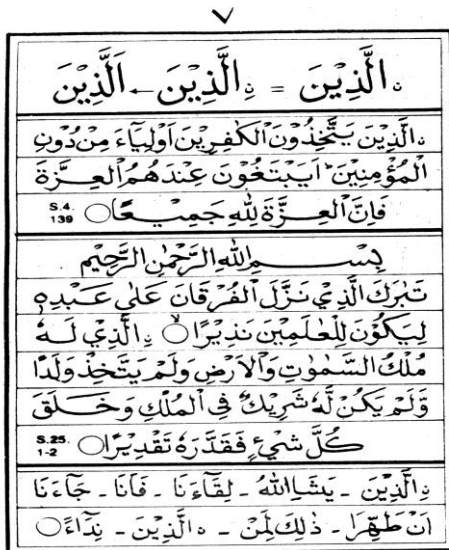 ✓
نِ الَّذِيْنَ = نِ الَّذِيْنَ ← اَلَّذِيْنَ
نِ الَّذِيْنَ يَتَّخِذُوْنَ الْكٰفِرِيْنَ اَوْلِيَآءَ مِنْ دُوْنِ
الْمُؤْمِنِيْنَ ؕ اَيَبْتَغُوْنَ عِنْدَهُمُ الْعِزَّةَ
فَاِنَّ الْعِزَّةَ لِلّٰهِ جَمِيْعًا ○ S.4. 139
بِسْمِ اللّٰهِ الرَّحْمٰنِ الرَّحِيْمِ
تَبٰرَكَ الَّذِيْ نَزَّلَ الْفُرْقَانَ عَلٰى عَبْدِهٖ
لِيَكُوْنَ لِلْعٰلَمِيْنَ نَذِيْرًا ○ نِ الَّذِيْ لَهٗ
مُلْكُ السَّمٰوٰتِ وَالْاَرْضِ وَلَمْ يَتَّخِذْ وَلَدًا
وَّلَمْ يَكُنْ لَّهٗ شَرِيْكٌ فِي الْمُلْكِ وَخَلَقَ
كُلَّ شَيْءٍ فَقَدَّرَهٗ تَقْدِيْرًا ○ S.25. 1-2
نِ الَّذِيْنَ - يَشَاِ اللّٰهُ - لِقَآءَنَا - فَاَنَا - جَآءَنَا
اَنْ طَهِّرَا - ذٰلِكَ لِمَنْ - نِ الَّذِيْنَ - نِدَآءً ○